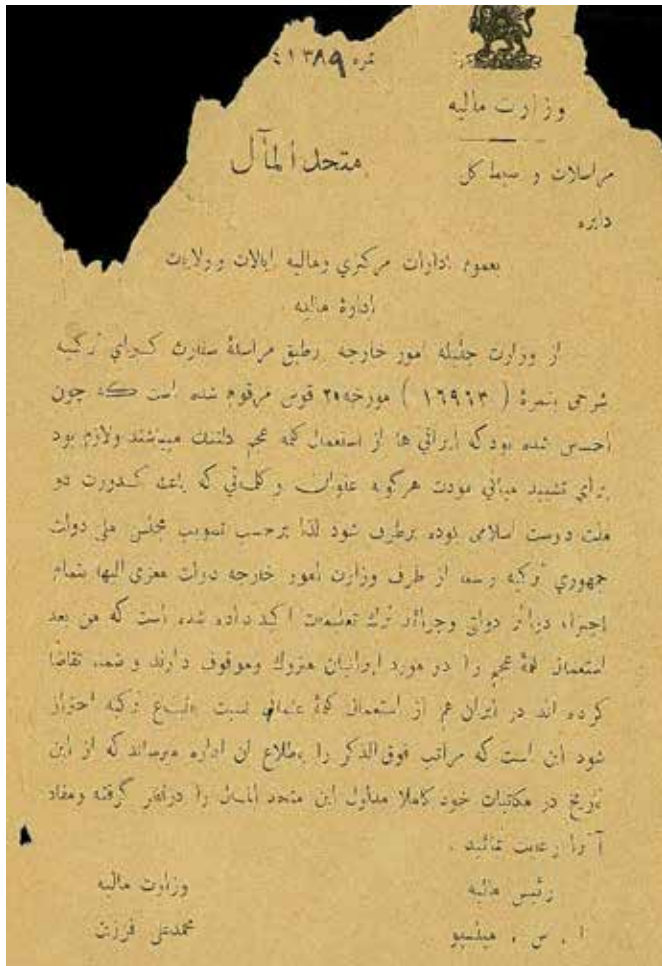 نمره ٤١٣٨٩
وزارت ماليه
متحد المآل
مراسلات و ضبط كل
دايره
بعموم ادارات مركزي و ماليه ايالات و ولايات
ادارۀ ماليه
از وزارت جليله امور خارجه برطبق مراسلۀ سفارت كبراي تركيه
شرحي بنمرۀ ( ١٦٩٦٣ ) مورخه ٢٥ قوس مرقوم شده است كه چون
احساس شده بود كه ايراني ها از استعمال كلمه عجم دلتنك ميباشند و لازم بود
براي تشييد مباني مودت هرگونه عناوين و كلماتي كه باعث كدورت دو
ملت دوست اسلامي بوده برطرف شود لذا برحسب تصويب مجلس ملي دولت
جمهوري تركيه رسما از طرف وزارت امور خارجه دولت معزي اليها بتمام
اجزاء دوائر دولتي و جرائد ترك تعليمات اكيد داده شده است كه من بعد
استعمال كلمۀ عجم را در مورد ايرانيان متروك و موقوف دارند و ضمنا تقاضا
كرده اند در ايران هم از استعمال كلمۀ عثماني نسبت باتباع تركيه احتراز
شود اين است كه مراتب فوق الذكر را باطلاع آن اداره ميرساند كه از اين
تاريخ در مكاتبات خود كاملا مدلول اين متحد المآل را درنظر گرفته و مفاد
آنرا رعايت نمائيد .
رئيس ماليه
وزارت ماليه
ا . س . ميلسپو
محمدعلي فرزين